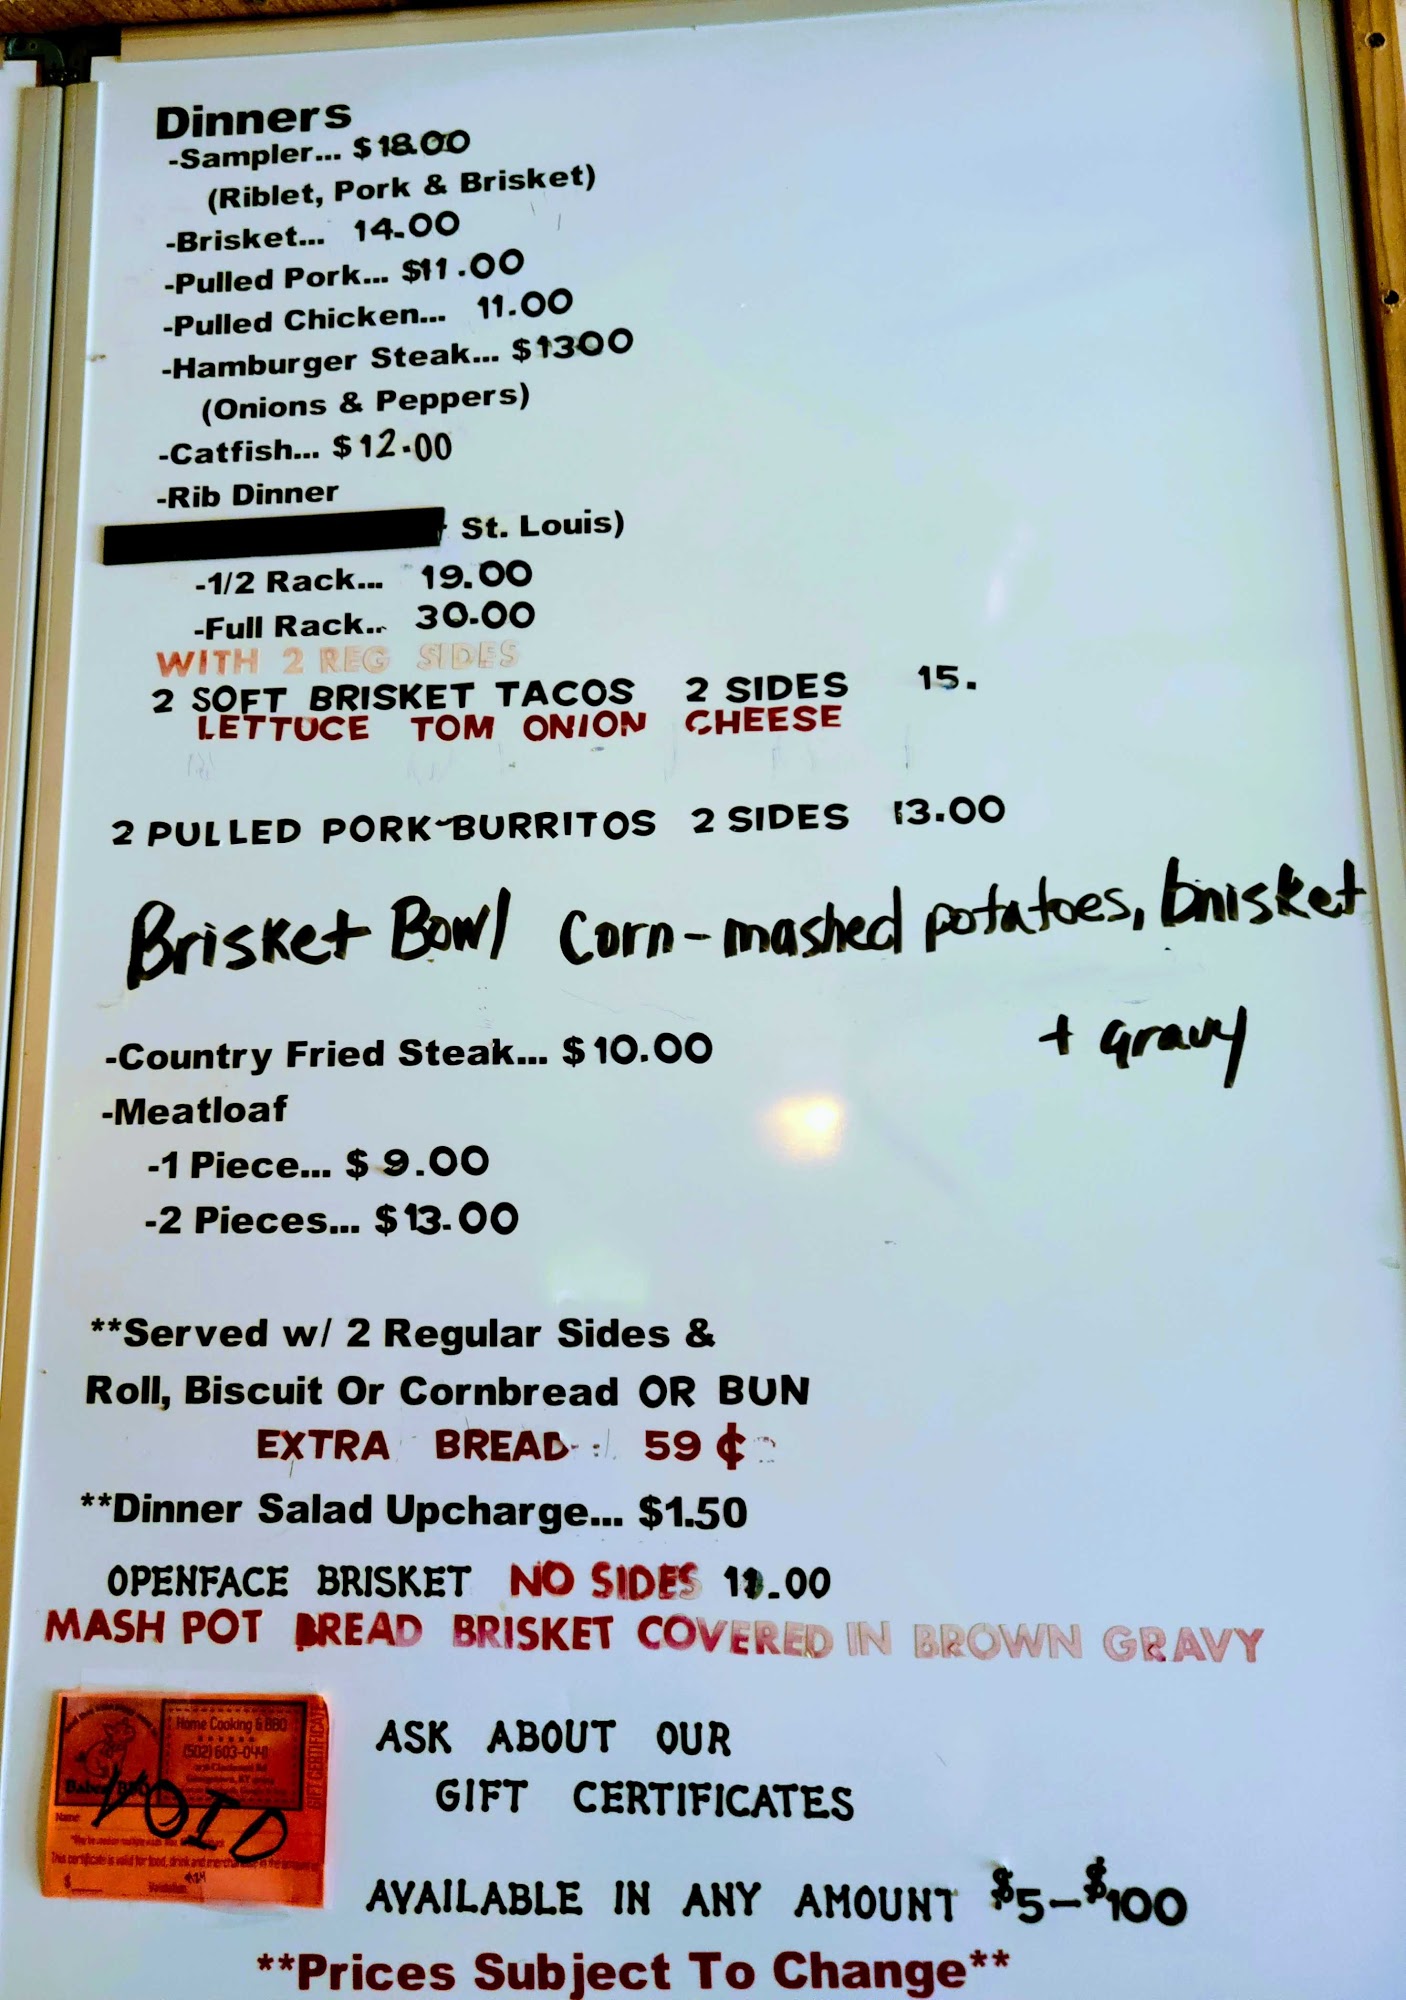 Dinners
-Sampler... $18.00
(Riblet, Pork & Brisket)
-Brisket... 14.00
-Pulled Pork... $11.00
-Pulled Chicken... 11.00
-Hamburger Steak... $1300
(Onions & Peppers)
-Catfish... $12.00
-Rib Dinner
St. Louis)
-1/2 Rack... 19.00
-Full Rack... 30.00
WITH 2 REG SIDES
2 SOFT BRISKET TACOS 2 SIDES 15.
LETTUCE TOM ONION CHEESE
2 PULLED PORK BURRITOS 2 SIDES 13.00
Brisket Bowl Corn-mashed potatoes, brisket
+ gravy
-Country Fried Steak... $10.00
-Meatloaf
-1 Piece... $9.00
-2 Pieces... $13.00
**Served w/ 2 Regular Sides &
Roll, Biscuit Or Cornbread OR BUN
EXTRA BREAD 59¢
**Dinner Salad Upcharge... $1.50
OPENFACE BRISKET NO SIDES
MASH POT BREAD BRISKET COVERED IN BROWN GRAVY
Home Cooking & BBQ
(502) 603-0441
VOID
GIFT CERTIFICATE
Name
ASK ABOUT OUR
GIFT CERTIFICATES
AVAILABLE IN ANY AMOUNT $5-$100
**Prices Subject To Change**